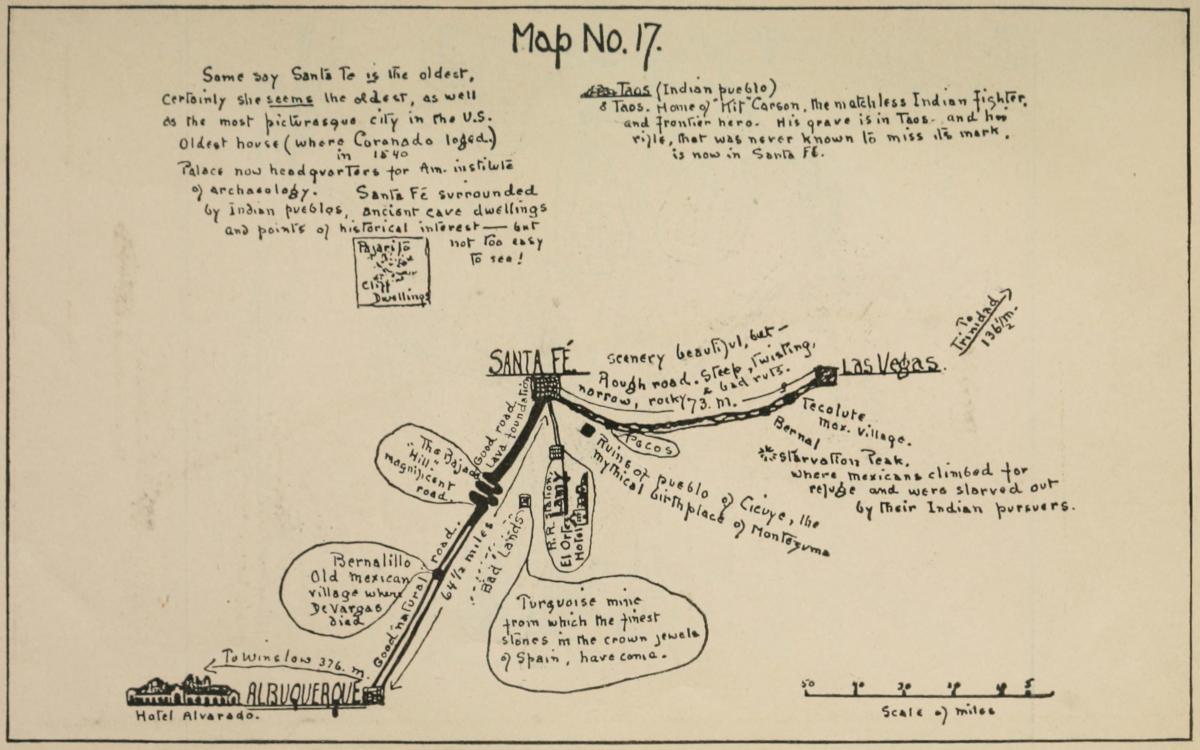 Map No. 17.
Some say Santa Fe is the oldest,
certainly she seems the oldest, as well
as the most picturesque city in the U.S.
Oldest house (where Coronado loged.)
in 1540
Palace now headquarters for Am. institute
of archaeology. Santa Fé surrounded
by Indian pueblos, ancient cave dwellings
and points of historical interest — but
not too easy
to see!
Pajarito
Cliff
Dwellings
TAOS (Indian pueblo)
& Taos. Home of "Kit" Carson, the matchless Indian fighter,
and frontier hero. His grave is in Taos. and his
rifle, that was never known to miss its mark,
is now in Santa Fé.
To
Trinidad
136½ m.
SANTA FÉ
scenery beautiful, but —
Rough road. Steep, twisting,
narrow, rocky & bad ruts.
73. m.
Las Vegas.
Tecolute
mex. village.
Bernal
Starvation Peak,
where mexicans climbed for
refuge and were starved out
by their Indian pursuers.
Pecos
Ruins of pueblo of Cicuye, the
mythical birthplace of Montezuma
Good road
Lava foundation
The Bajada
"Hill"
magnificent
road.
R.R. Station
LAMY
El Ortiz
Hotel
Bad Lands
64½ miles
Good natural road.
Bernalillo
Old mexican
village where
DeVargas
died
Turquoise mine
from which the finest
stones in the crown jewels
of Spain, have come.
To Winslow 376. m.
ALBUQUERQUE
Hotel Alvarado.
50 40 30 20 10 5
Scale of miles